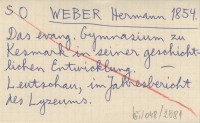 S.O WEBER Hermann 1854.
Das evang. Gymnasium zu
Kesmark in seiner geschicht-
lichen Entwicklung. —
Leutschau, im Jahresbericht
des Lyzeums.